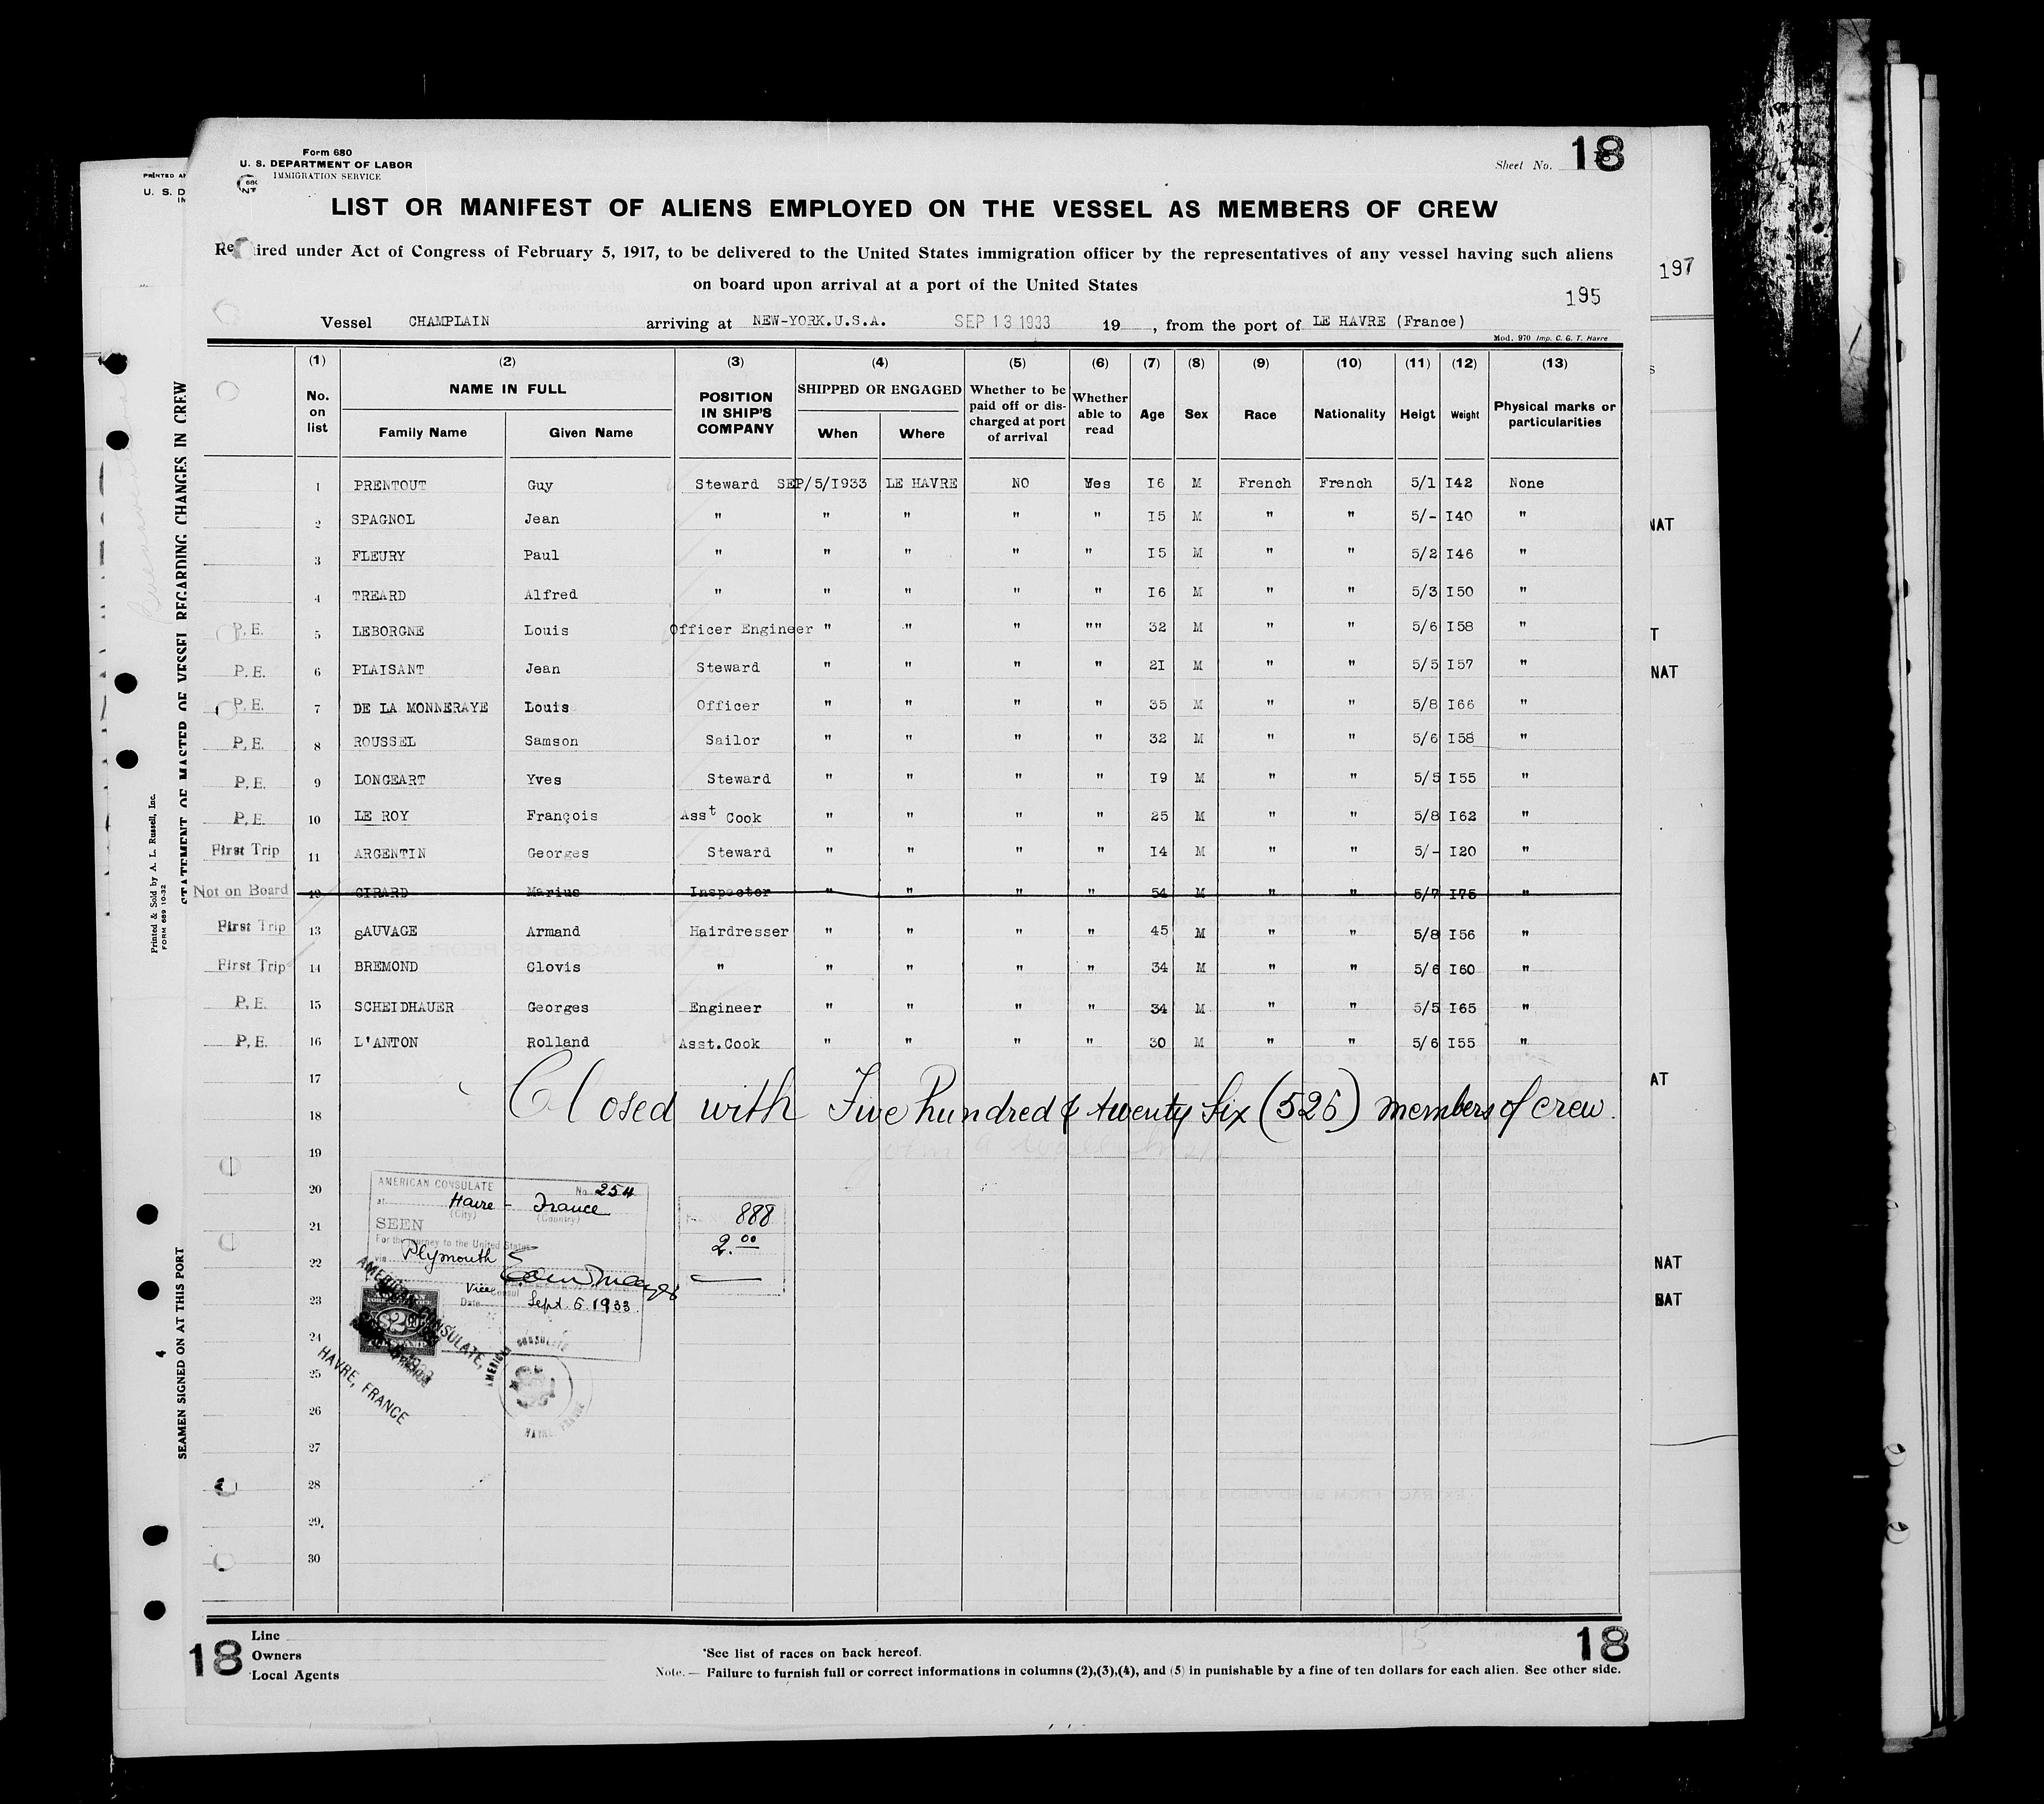 Form 680
U. S. DEPARTMENT OF LABOR
IMMIGRATION SERVICE
Sheet No. 18
LIST OR MANIFEST OF ALIENS EMPLOYED ON THE VESSEL AS MEMBERS OF CREW
Required under Act of Congress of February 5, 1917, to be delivered to the United States immigration officer by the representatives of any vessel having such aliens
on board upon arrival at a port of the United States
195
197
Vessel CHAMPLAIN arriving at NEW-YORK.U.S.A. SEP 13 1933 19 , from the port of LE HAVRE (France)
Mod. 970 Imp. C. G. T. Havre
(1) (2) (3) (4) (5) (6) (7) (8) (9) (10) (11) (12) (13)
No. on list NAME IN FULL Family Name Given Name POSITION IN SHIP'S COMPANY SHIPPED OR ENGAGED When Where Whether to be paid off or discharged at port of arrival Whether able to read Age Sex Race Nationality Heigt Weight Physical marks or particularities
1 PRENTOUT Guy Steward SEP/5/I933 LE HAVRE NO Yes I6 M French French 5/1 I42 None
2 SPAGNOL Jean " " " " " I5 M " " 5/- I40 "
3 FLEURY Paul " " " " " I5 M " " 5/2 I46 "
4 TREARD Alfred " " " " " I6 M " " 5/3 I50 "
P. E. 5 LEBORGNE Louis Officer Engineer " " " "" 32 M " " 5/6 I58 "
P. E. 6 PLAISANT Jean Steward " " " " 2I M " " 5/5 I57 "
P. E. 7 DE LA MONNERAYE Louis Officer " " " " 35 M " " 5/8 I66 "
P. E. 8 ROUSSEL Samson Sailor " " " " 32 M " " 5/6 I58 "
P. E. 9 LONGEART Yves Steward " " " " I9 M " " 5/5 I55 "
P. E. 10 LE ROY François Asst Cook " " " " 25 M " " 5/8 I62 "
First Trip 11 ARGENTIN Georges Steward " " " " I4 M " " 5/- I20 "
Not on Board 12 GIRARD Marius Inspector " " " " 54 M " " 5/7 I75 "
First Trip 13 SAUVAGE Armand Hairdresser " " " " 45 M " " 5/8 I56 "
First Trip 14 BREMOND Clovis " " " " " 34 M " " 5/6 I60 "
P. E. 15 SCHEIDHAUER Georges Engineer " " " " 34 M " " 5/5 I65 "
P. E. 16 L'ANTON Rolland Asst.Cook " " " " 30 M " " 5/6 I55 "
17
18 Closed with Five hundred & twenty six (526) members of crew.
19
20
21
22
23
24
25
26
27
28
29
30
AMERICAN CONSULATE
No. 254
at Havre - France
(City) (Country)
SEEN
For the journey to the United States
via Plymouth
Vice Consul
Date Sept. 5. 1933
888
2.00
AMERICAN CONSULATE,
HAVRE, FRANCE
AMERICAN CONSULATE
HAVRE, FRANCE
18 Line
Owners
Local Agents
*See list of races on back hereof.
Note. — Failure to furnish full or correct informations in columns (2),(3),(4), and (5) in punishable by a fine of ten dollars for each alien. See other side.
18
STATEMENT OF MASTER OF VESSEL REGARDING CHANGES IN CREW
Printed & Sold by A. L. Russell, Inc.
FORM 689 10-32
SEAMEN SIGNED ON AT THIS PORT
4
PRINTED
U. S. D
NAT
T
NAT
AT
NAT